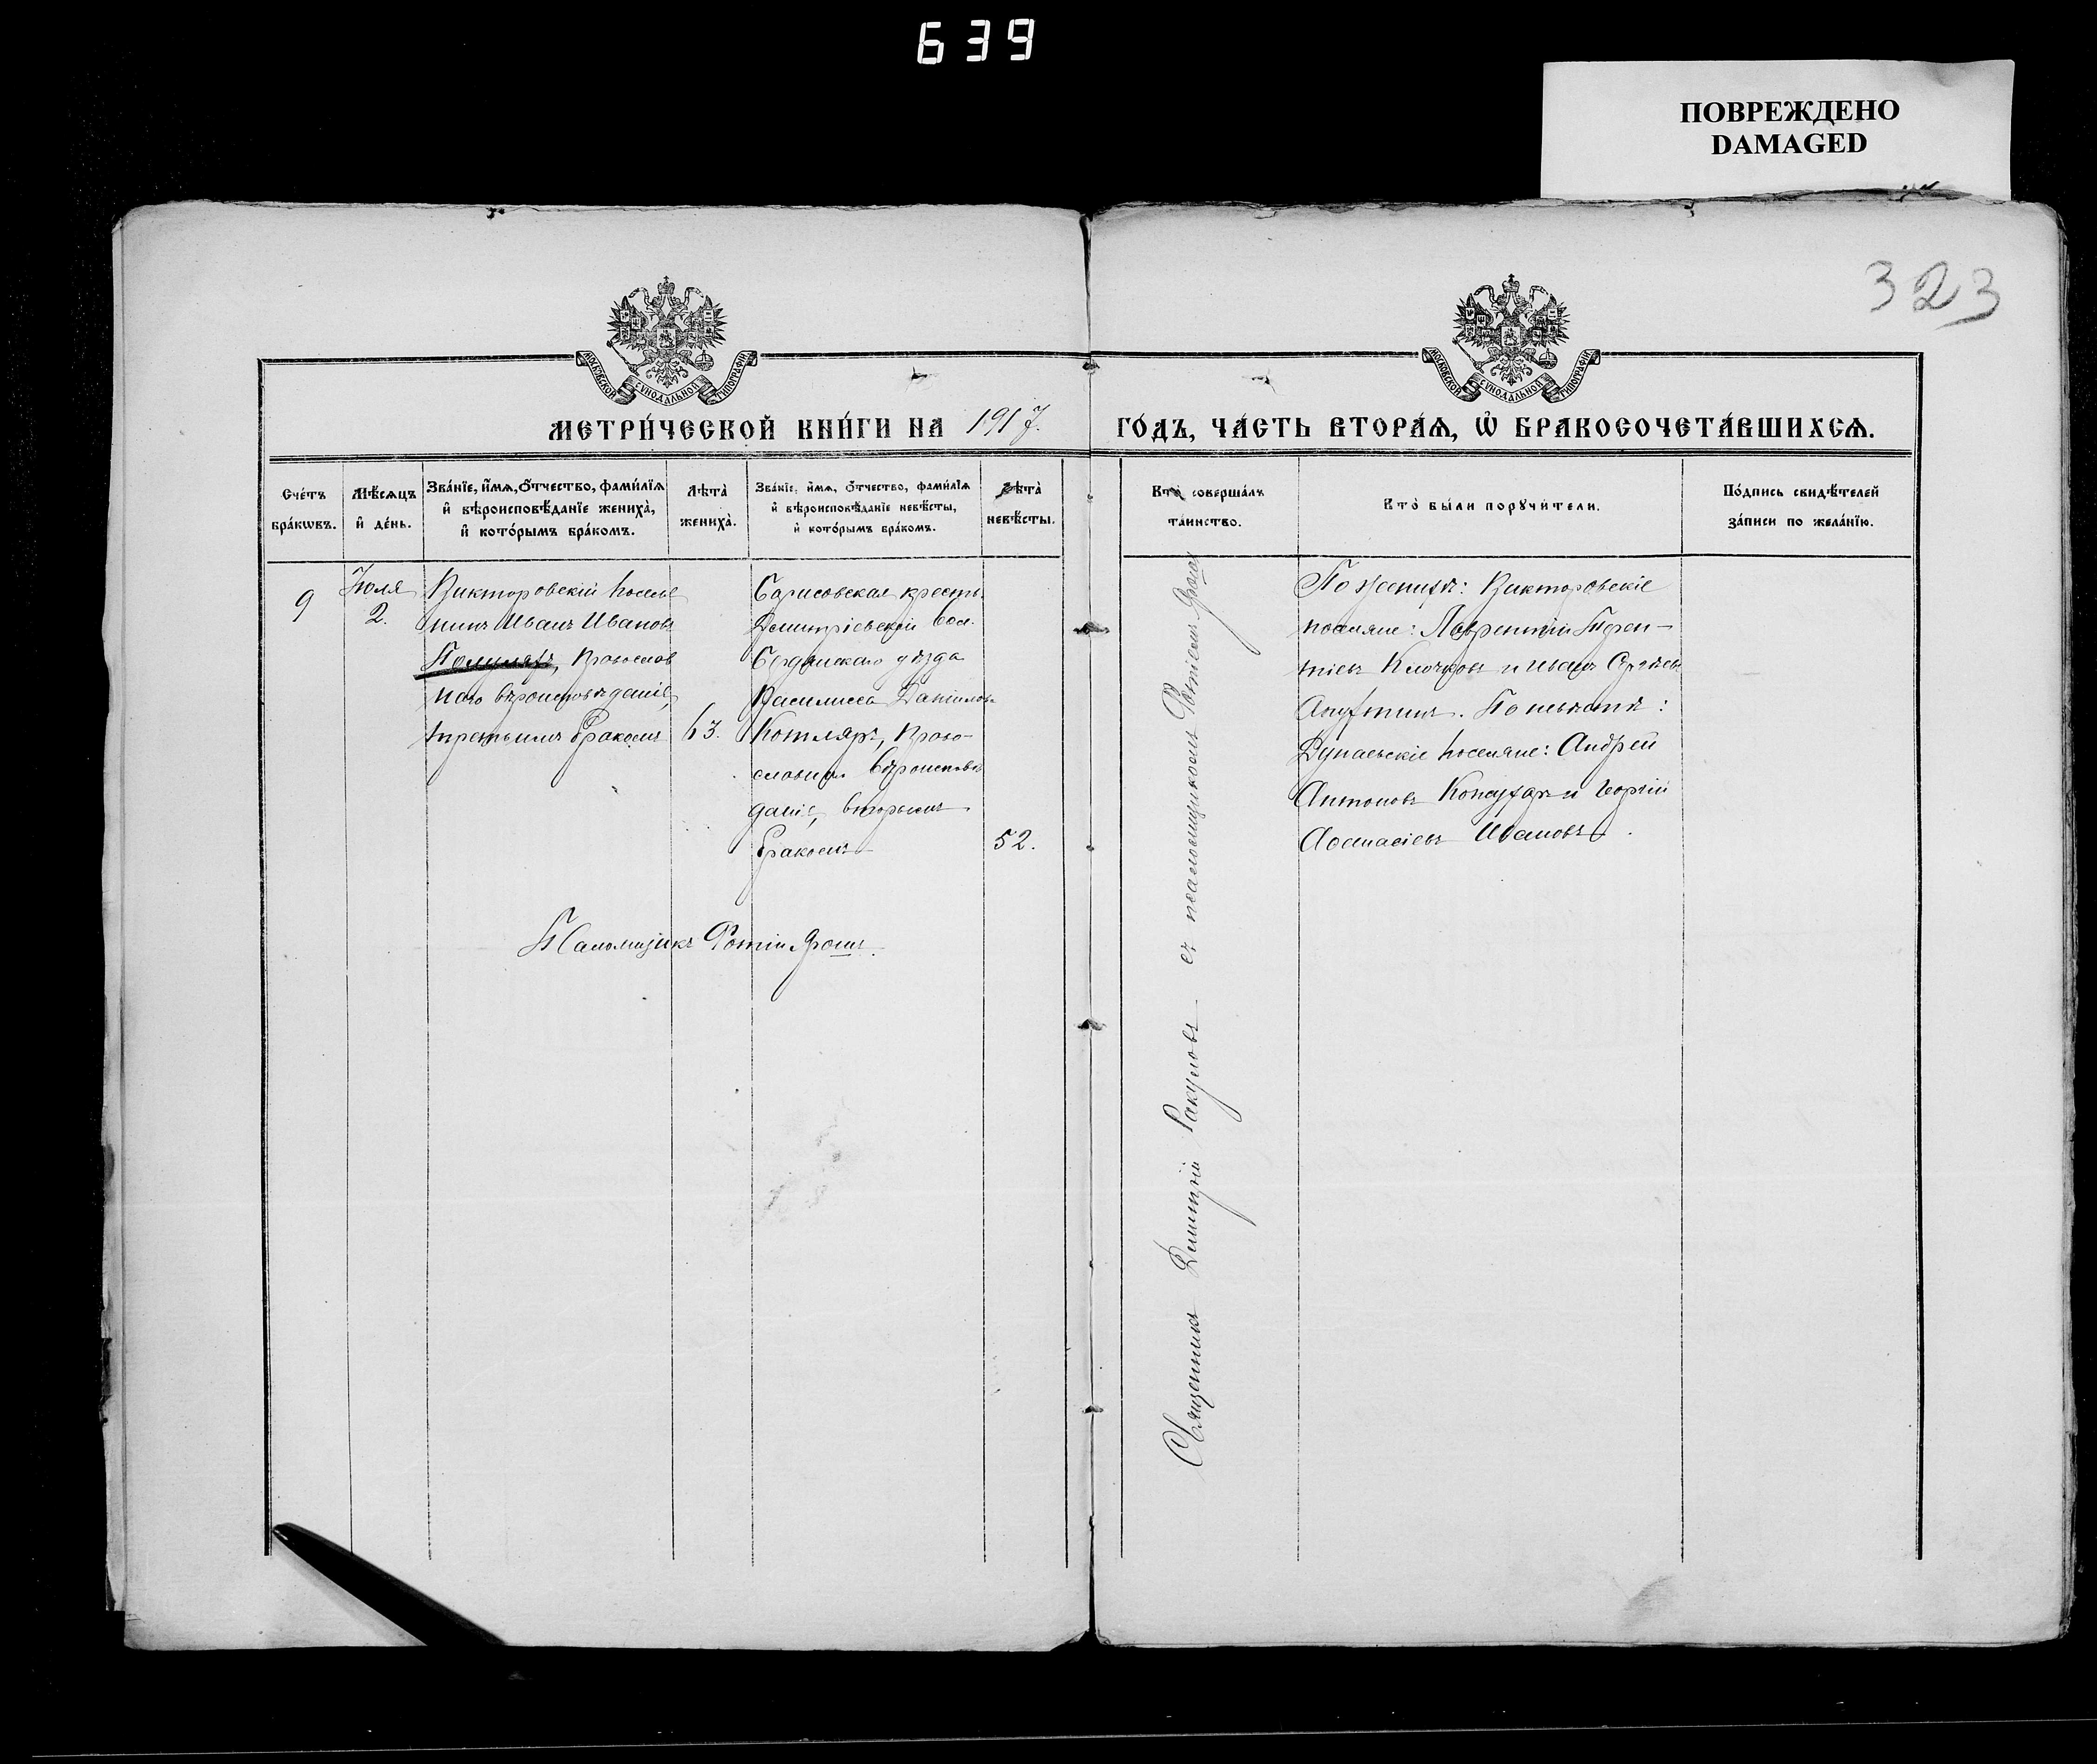 639
ПОВРЕЖДЕНО
DAMAGED
323
МОСКОВСКОЙ СѴНОДАЛЬНОЙ ТИПОГРАФІИ
МОСКОВСКОЙ СѴНОДАЛЬНОЙ ТИПОГРАФІИ
МЕТРИ́ЧЕСКОЙ КНИ́ГИ НА 1917. ГО́ДЪ, ЧА́СТЬ ВТОРА́Ѧ, Ѽ БРАКОСОЧЕТА́ВШИХСѦ.
Сче́тъ бра́кѡвъ.
Мѣ́сѧцъ и҆ де́нь.
Зва́нїе, и҆́мѧ, ѻ҆́тчество, фами́лїѧ
и҆ вѣроисповѣ́данїе жениха̀,
и҆ кото́рымъ бра́комъ.
Лѣта̀ жениха̀.
Зва́нїе, и҆́мѧ, ѻ҆́тчество, фами́лїѧ
и҆ вѣроисповѣ́данїе невѣ́сты,
и҆ кото́рымъ бра́комъ.
Лѣта̀ невѣ́сты.
Кто̀ соверша́лъ
та́инство.
Кто̀ бы́ли порꙋчи́тели.
По́дпись свидѣ́телей
за́писи по жела́нїю.
9
Іюля
2.
Викторовскій поселя
нинъ Иванъ Ивановъ
Православ
наго вѣроисповѣданіе,
третьимъ бракомъ
63.
Борисовская кресть.
Дмитріевской вол.
Бердянскаго уѣзда
Василисса Данилов.
Котляръ, Право-
славнаго вѣроисповѣ
даніе, вторымъ
бракомъ
52.
Псаломщикъ Фотій Ярош
Священникъ Димитрій Ракуловъ съ псаломщикомъ Фотіемъ Ярошъ
По женихѣ: Викторовскіе
поселяне: Лаврентій Терен-
тіевъ Клочковъ и Иванъ Сергѣевъ
По невѣстѣ:
Дунаевскіе поселяне: Андрей
Антоновъ и Георгій
Аѳанасіевъ Ивановъ.